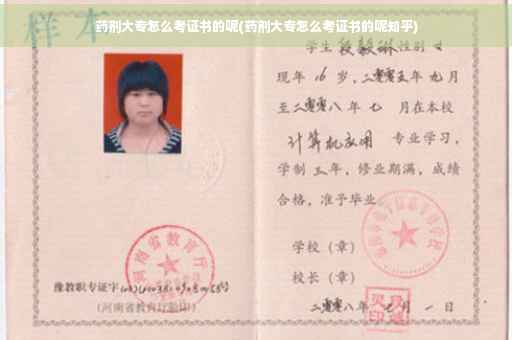 药剂大专怎么考证书的呢(药剂大专怎么考证书的呢知乎)
样本
学生段毅琳性别女
现年16岁,二零零五年九月
至二零零八年七月在本校
计算机应用 专业学习,
学制三年,修业期满,成绩
合格,准予毕业。
学校(章)
校长(章)
二零零八年七月一日
河南省教育厅
豫教职专证字
(河南省教育厅验印)